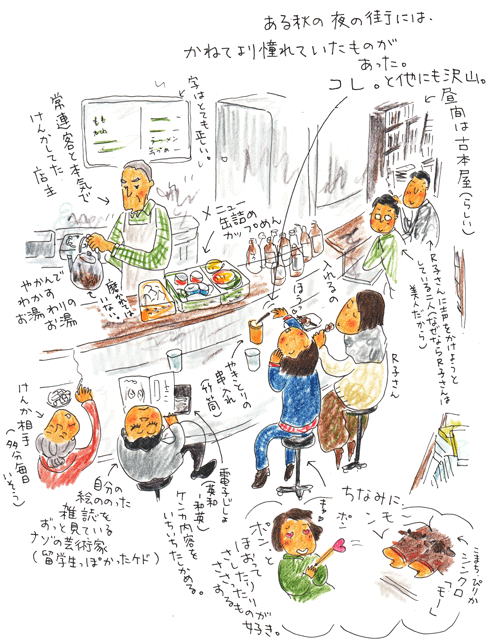 ある秋の夜の街には、
かねてより憧れていたものが
あった。
コレ。と他にも沢山。
昼間は古本屋(らしい)
字はとても正しい。
常連客と本気で
けんかしてた
店主
メニュー
缶詰の
カップめん
やかんで
わかす
お湯わりの
お湯
R子さんに声をかけようと
している二人(なぜならR子さんは
美人だから)
R子さん
やきとりの
串入れ
(竹筒)
けんか相手
(多分毎日
自分の
絵ののった
雑誌を
ずっと見ている
ナゾの芸術家
(留学生っぽかったケド)
電子じしょ
(英和
和英)
ケンカ内容を
いちいちたしかめる。
ちなみに
シモー
ポン
ポンと
ほおって
さしたり
ささったり
するものが
好き。
こまちぴりか
シンクロ
「モー」